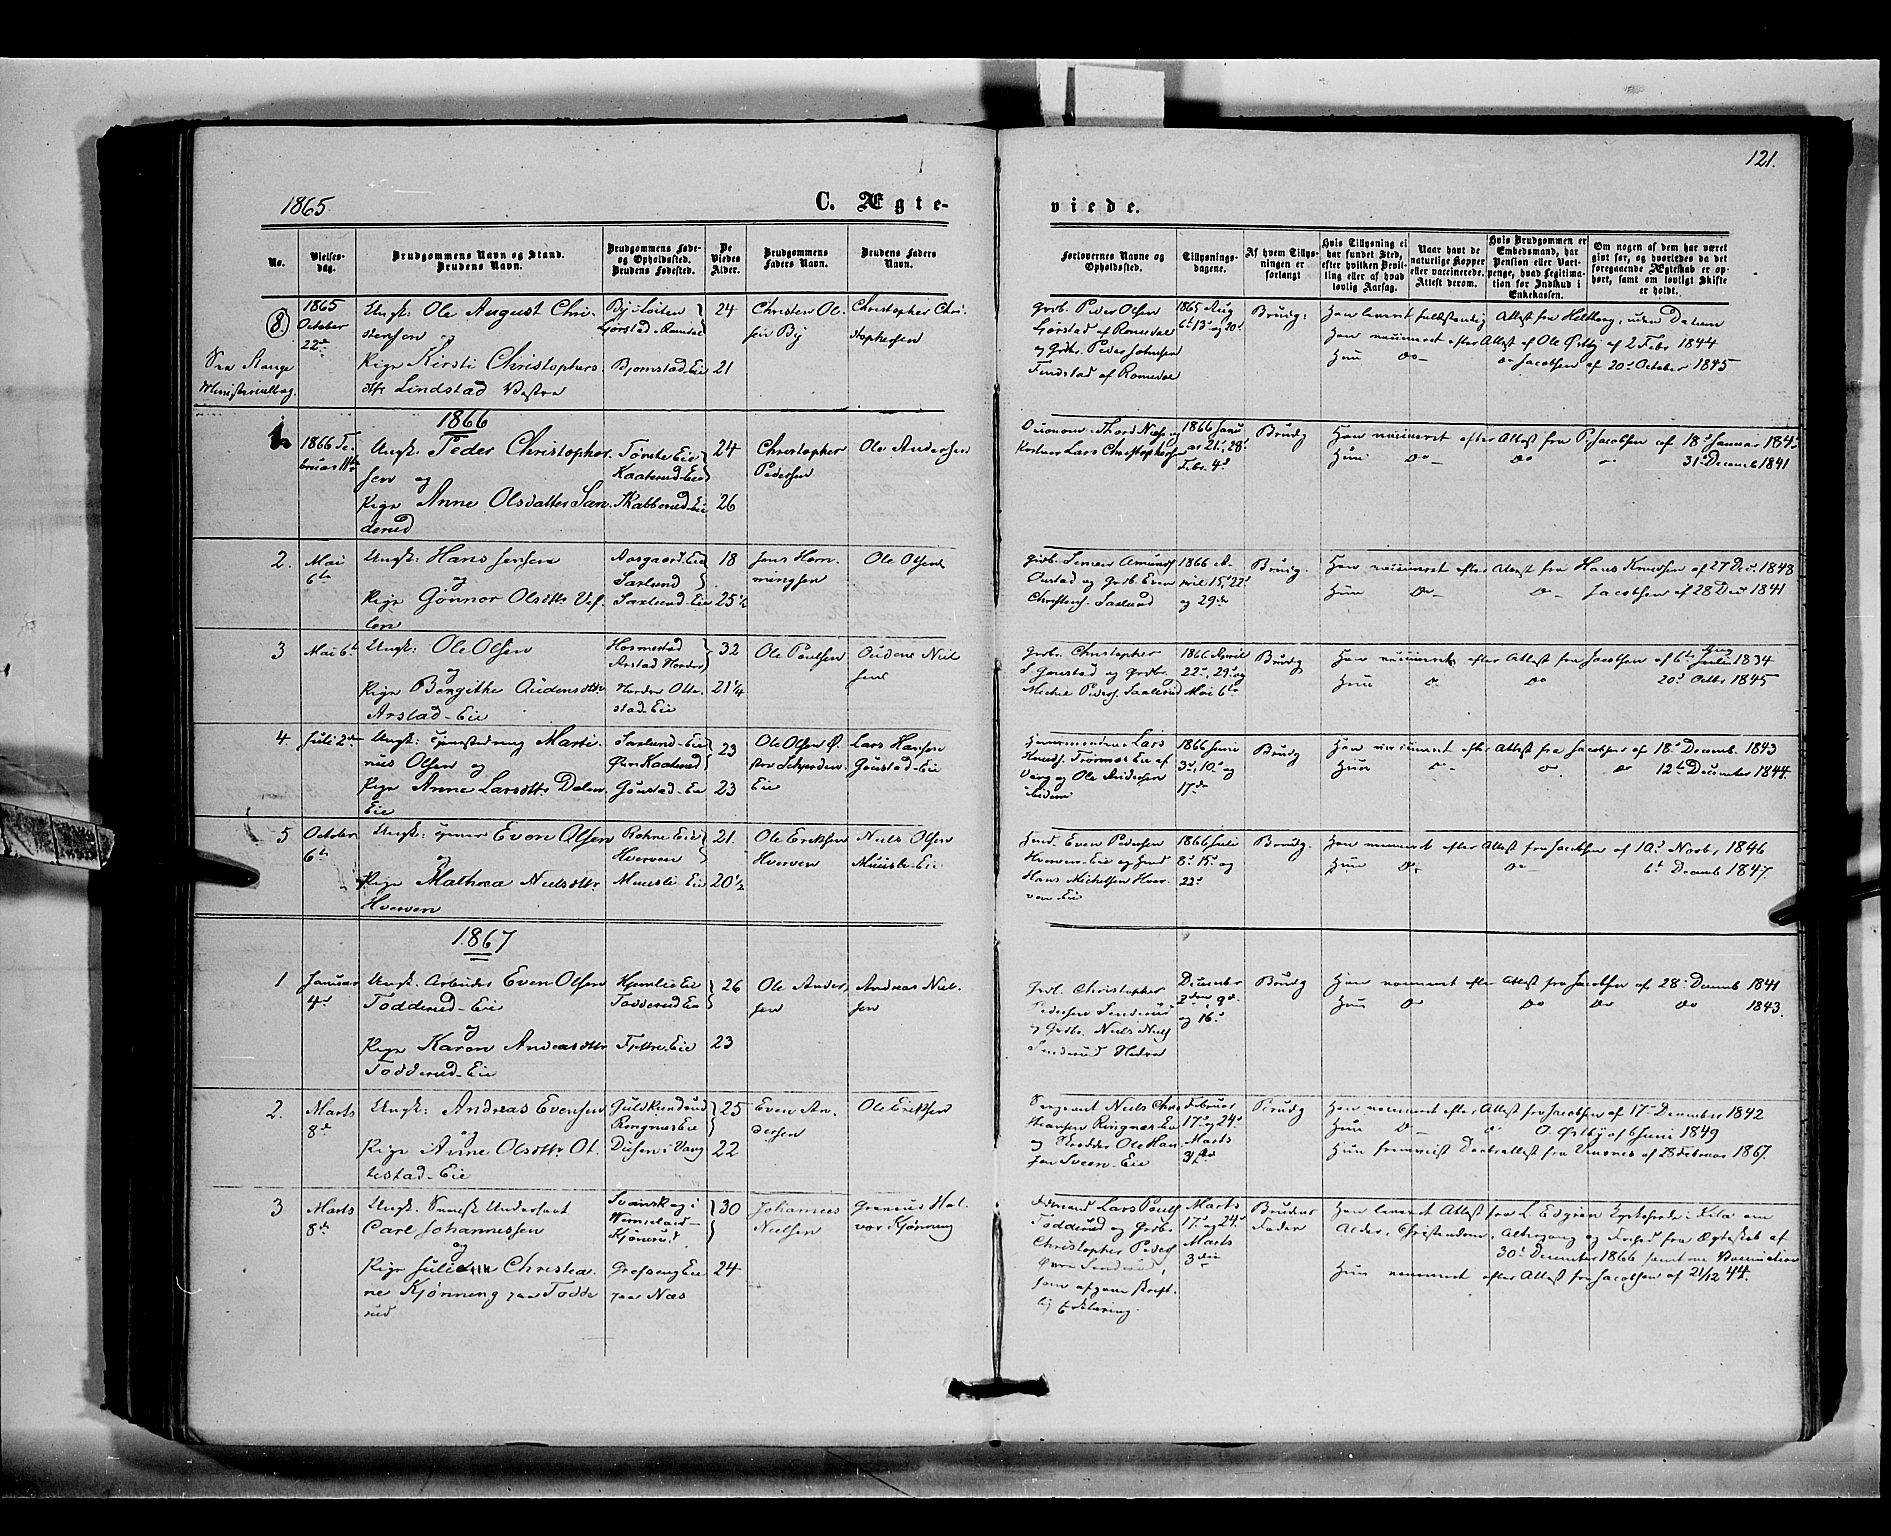 121.
1865.
C. Ægte-
viede.
No.
Vielses-
dag.
Brudgommens Navn og Stand.
Brudens Navn.
Brudgommens Føde-
og Opholdssted.
Brudens Fødested.
De
Viedes
Alder.
Brudgommens
Faders Navn.
Brudens Faders
Navn.
Forlovernes Navne og
Opholdssted.
Tillysnings-
dagene.
Af hvem Tillys-
ningen er
forlangt
Hvis Tillysning ei
har fundet Sted,
efter hvilken Bevil-
ling eller af hvad
lovlig Aarsag.
Naar havt de
naturlige Kopper
eller vaccinerede.
Attest derom.
Hvis Brudgommen er
Embedsmand, har
Pension eller Vart-
penge, hvad Legitima-
tion for Indskud i
Enkekassen.
Om nogen af dem har været
gift før, og hvorledes da det
foregaaende Ægteskab er op-
hørt, samt om lovligt Skifte
er holdt.
8.
Fra Stange
Ministerialbog
1865
October
22de
Ungk: Ole August Chri-
stensen og
Pige Kirsti Christophers
dtr Lindstad Vestre
By i Løiten
Gjørstad Romedal
Bjørnstad-Eie
24
21
Christen Ol-
sen By
Christopher Chri-
stophersen
Grdb. Peder Olsen
Gjørstad af Romedal
og Grdbr. Peder Johnsen
Finstad af Romedal
1865 Aug
6te 13de og 20de
Brudg:
Han levert fuldstændig Attest fra Helberg, uden Datum
Han vaccineret efter Attest af Ole Østby af 2 Febr. 1844
Hun Do- Do Jacobsen af 20de October 1845
1866
1.
1866 Fe-
bruar 11te
Ungk: Peder Christopher-
sen og
Pige Anne Olsdatter San-
derud
Tømte Eie
Kaaterud-Eie
Skabberud-Eie
24
26
Christopher
Pedersen
Ole Andersen
Oeconom. Thord Niels. og
Lars Christophersen
1866 Janu
ar 21de, 28de
Febr. 4de
Brudg
Han vaccineret efter Attest fra P. Jacobsen af 18de Januar 1843
Hun Do- Do 31te Decemb 1841
2.
Mai
6te
Ungk: Hans Jensen
og
Pige Gønnor Olsdtr. Vef-
len
Aasgaard-Eie
Saxlund
Saxlund-Eie
18
25 1/2
Jens Hem-
mingsen
Ole Olsen
Grdb. Simen Amunds
Onstad og Grdb. Even
Christens. Saxlund
1866 A-
pril 15de 22de
og 29de
Brudg.
Han vaccineret efter Attest fra Hans Knudsen af 27 Dec. 1848
Hun Do- Do- Jacobsen af 28 Dec 1841
3
Mai 6te
Ungk: Ole Olsen
og
Pige Bengithe Audensdtr
Arstad-Eie
Hosmestad
Arstad Nordre
Nordre Otte-
stad-Eie
32
21 1/4
Ole Poulsen
Oudene Niel-
sen
Grdb. Christopher
S. Gaustad og Grdbr.
Michel Peders. Saxlund
1866 April
22de, 29de og
Mai 6te
Brudg
Han vaccineret efter Attest fra Jacobsen af 6te Aug 1834
Hun Do Do 20de Octbr 1845
4.
Juli 2den
Ungk: Tjenestedreng Marti-
nus Olsen og
Pige Anne Larsdtr Dalen
Eie
Saxlund-Eie
Øvre Kaaterud
Gaustad-Eie
23
23
Ole Olsen
Eie
Lars Hansen
Gaustad-Eie
Husmændene Lars
Knuds. Trønnæs Eie af
Vang og Ole Andersen
1866 Juni
3de, 10de og
17de
Brudg
Han vaccineret efter Attest fra Jacobsen af 18de Decemb. 1843
Hun Do- Do. Do 12te December 1844.
5
October
6te
Ungk: Even Olsen
og
Pige Mathea Nielsdtr
Hverven
Rohne Eie
Hverven
Mæhle Eie
21.
20 1/2
Ole Eriksen
Hverven
Niels Olsen
Mæhle-Eie
Husm. Even Pedersen
Hverven-Eie og Husm
Hans Michelsen Hver-
ven Eie
1866 Juli
8de 15de og
22de
Brudg.
Han vaccineret efter Attest fra Jacobsen af 10de Novb. 1846
Hun Do. Do- 6te Decemb 1847
1867
1
Januar
4de
Ungk. Arbeider Even Olsen
Todderud-Eie
og
Pige Karen Andreasdtr
Todderud-Eie
Hjemlie Eie
Todderud Eie
Tjette-Eie
26
23
Ole Ander-
sen
Andreas Niel-
sen
Grdb. Christopher
Pedersen Sanderud
og Grdbr. Niels Niels.
Sanderud Nedre
December
2den, 9de
og 16de
Brudg
Han vaccineret efter Attest fra Jacobsen af 28de Decemb 1841
Hun Do Do Do Do 1843.
2.
Marts
8de
Ungk: Andreas Evensen
og
Pige Anne Olsdtr. Ot-
testad-Eie
Guldkundrud
Ringnæs Eie
Disen i Vang
25
22
Even An-
dersen
Ole Eriksen
Sergeant Niels Chris
Hansen Ringnæs Eie
og Snedker Ole Han-
sen Sveen-Eie
Februar
17de og 24de
Marts
3die
Brudg
Han vaccineret efter Attest fra Jacobsen af 17de December 1842
Hun Do- Do O. Østby af 6 Juni 1849
Hun fremviist Daabsattest fra Vinsnes af 28 Februar 1867.
3
Marts
8de
Ungk. Svensk Undersaat
Carl Johannessen
og
Pige Juliane Christia-
ne Kjønning paa Todde
rud
Svanskog i
Wermeland-
Kjønerud
Grefseng Eie
paa Næs
30
24
Johannes
Nielsen
Grenius Hal-
vor Kjønning
Husmand Lars Pouls
Todderud og Grdbr.
Christopher Peders
Øvre Sanderud,
som afgav skrift-
lig Erklæring.
Marts
17de og 24de
Marts
3die
Brudens
Fader
Han levert Attest fra L. Edgren Kyrkoherde i Kila om
Alder, Christendom, Altergang og Frihed fra Ægteskab af
30de December 1866 samt om Vaccination
Hun vaccineret efter Attest fra Jacobsen af 21/12 44.